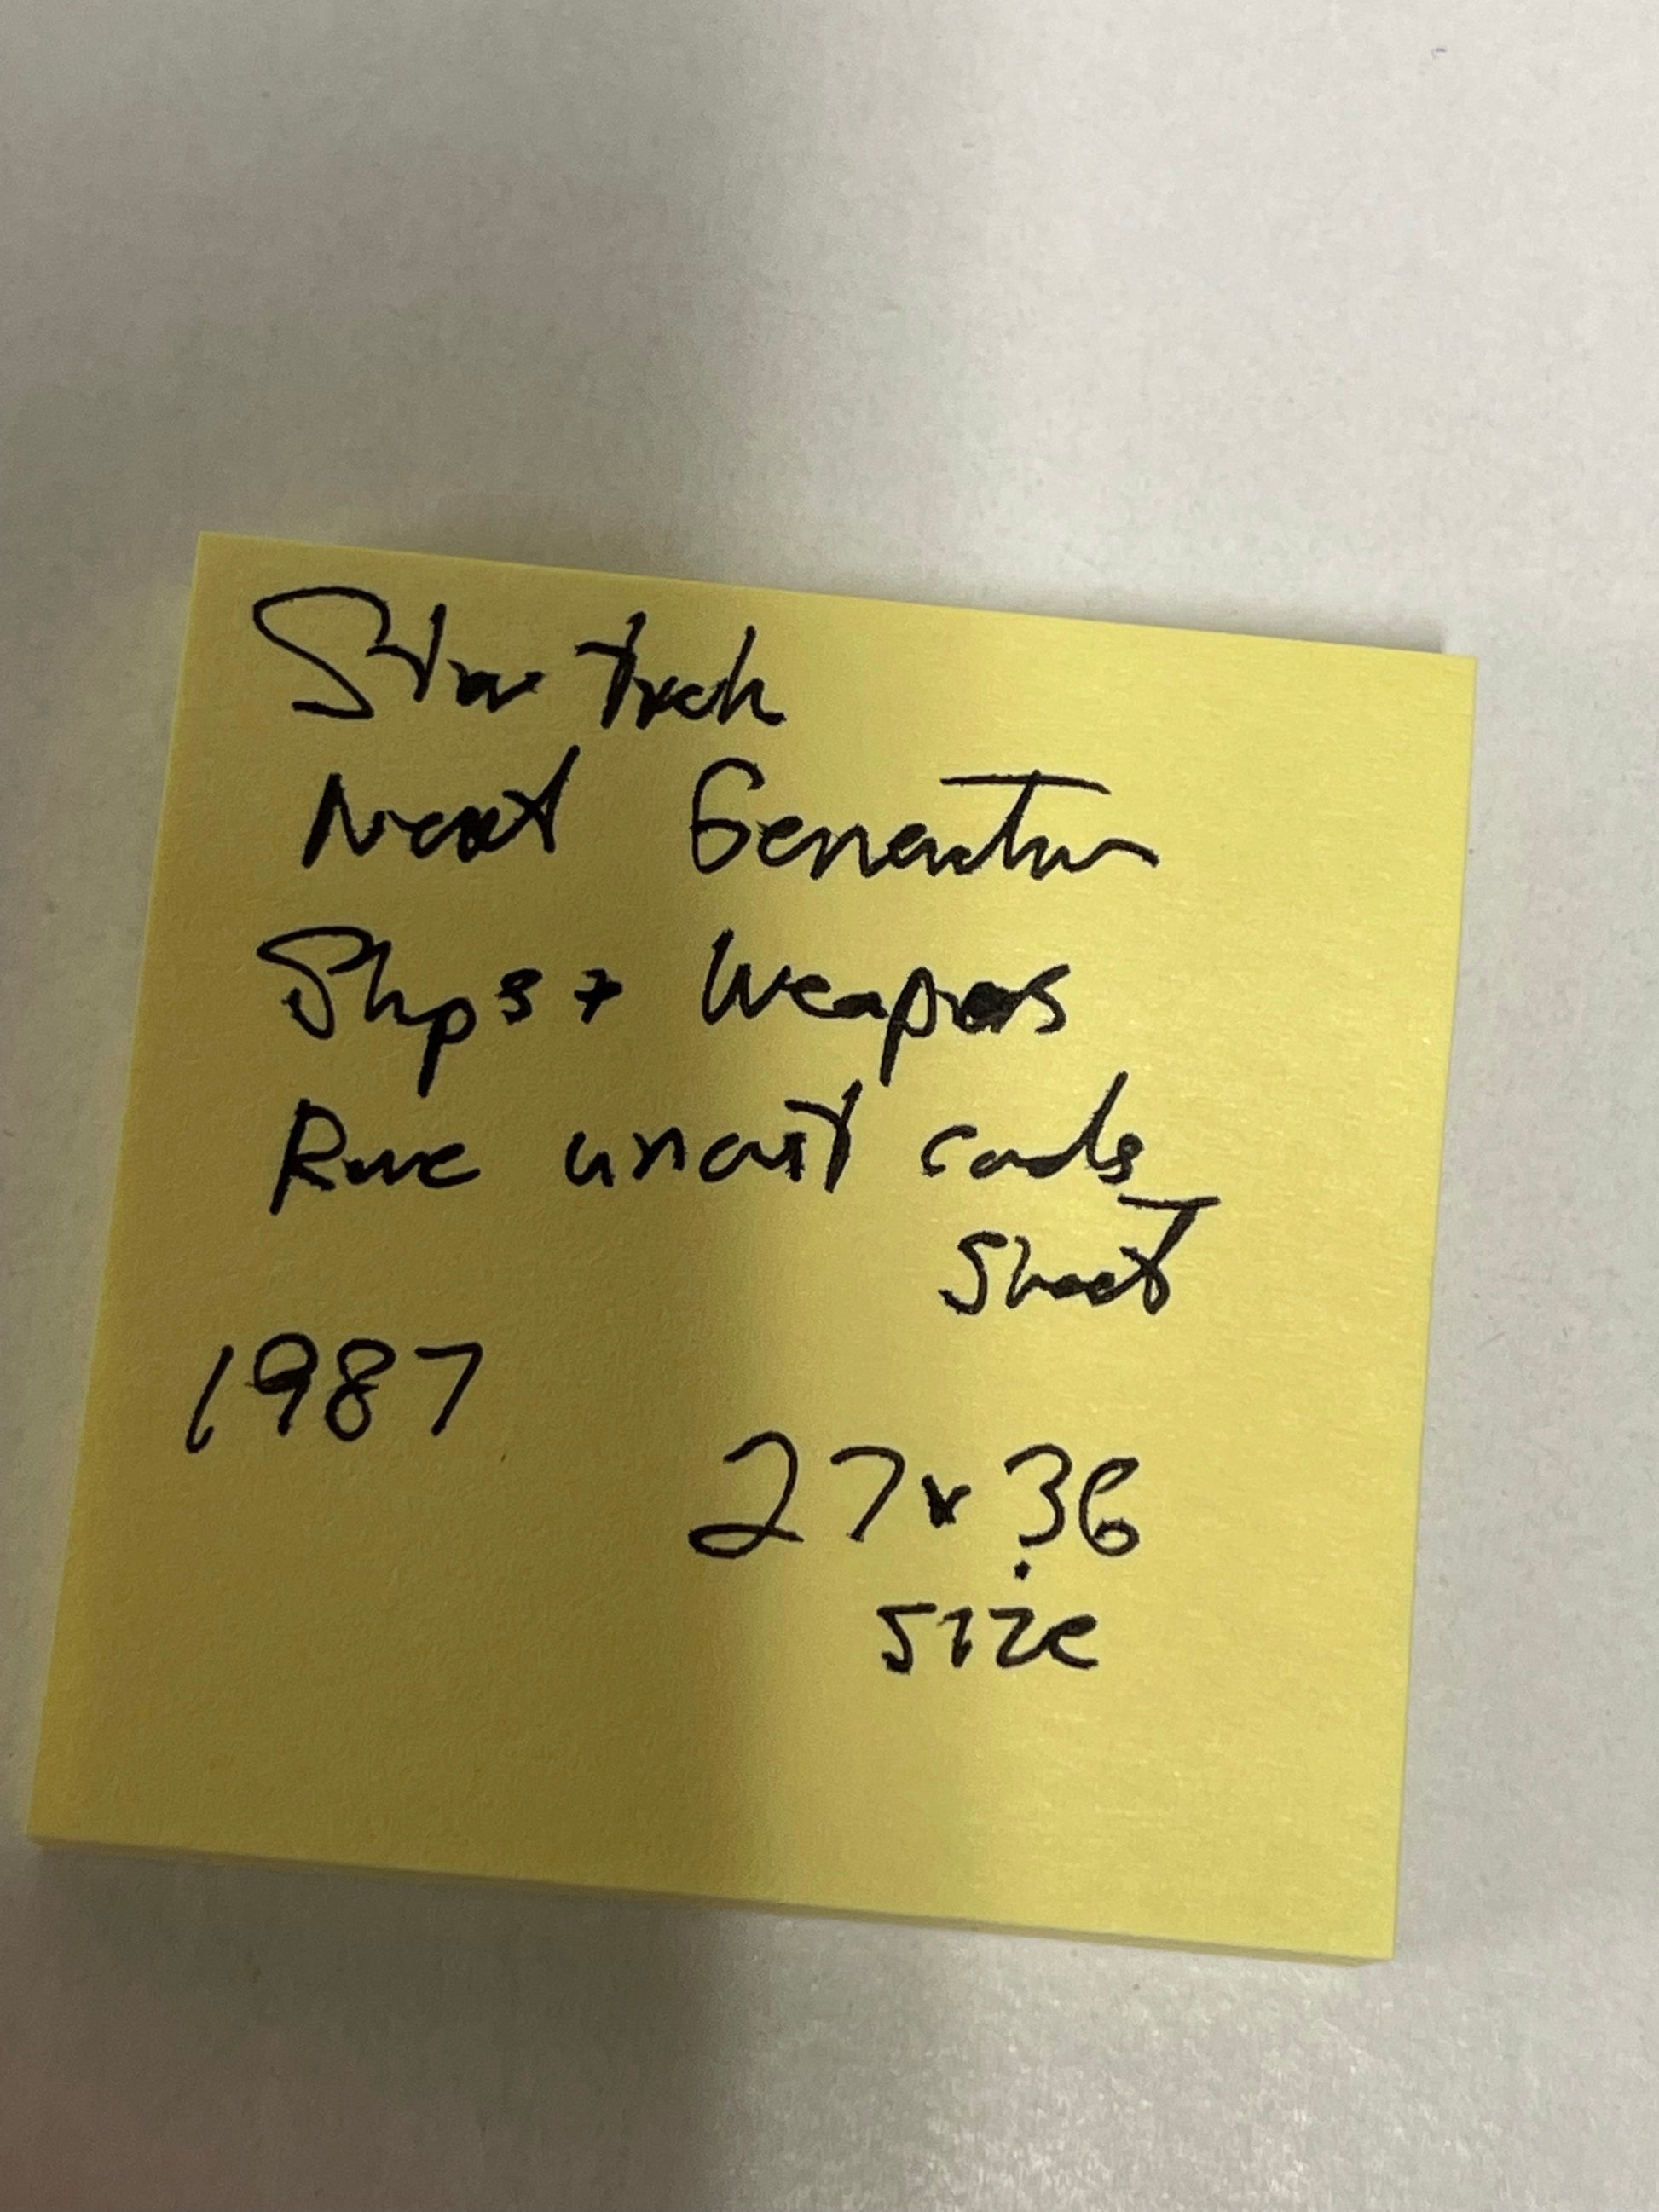 Star Trek
Next Generation
Ships + Weapons
Rare uncut cards
Sheet
1987
27x36
size